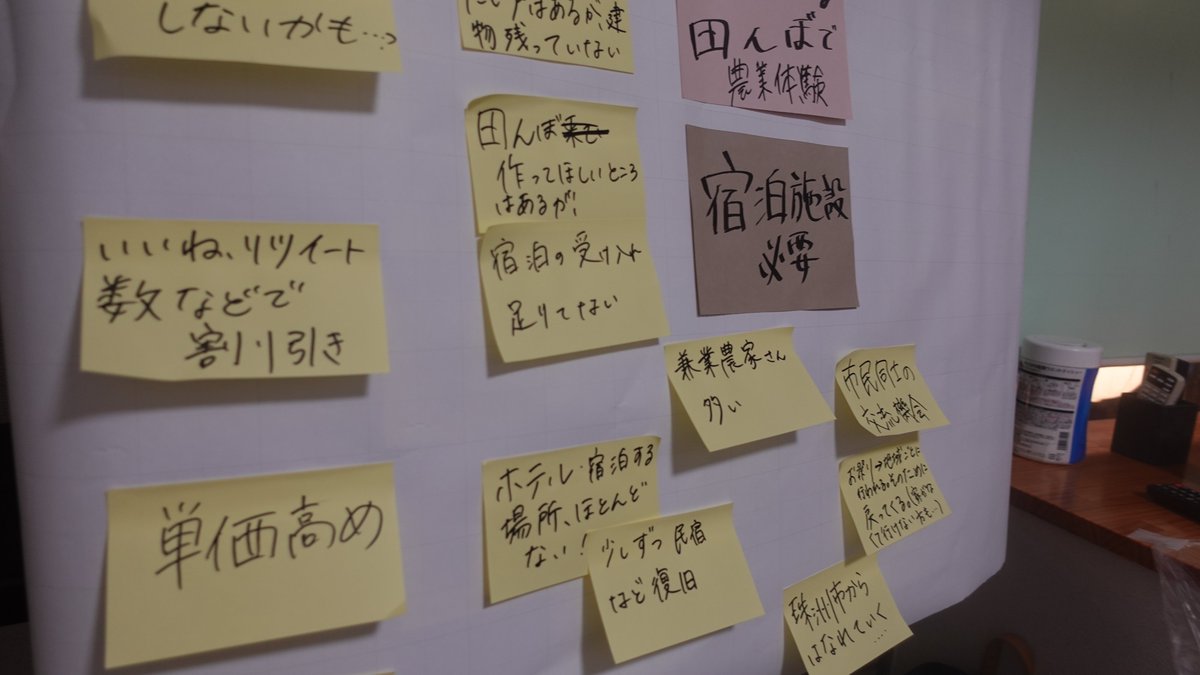 しないかも…。
はあるが、建
物残っていない
田んぼで
農業体験
田んぼ
作ってほしいところ
はあるが!
宿泊施設
必要
いいね、リツイート
数などで
割り引き
宿泊の受け入れ
足りてない
兼業農家さん
多い
市民同士の
交流機会
単価高め
ホテル・宿泊する
場所、ほとんど
ない!
少しずつ民宿
など復旧
お祭り→地域ごとに
行われる。そのために
戻ってくる(家がな
くて行けない方も…)
珠洲市から
はなれていく
....